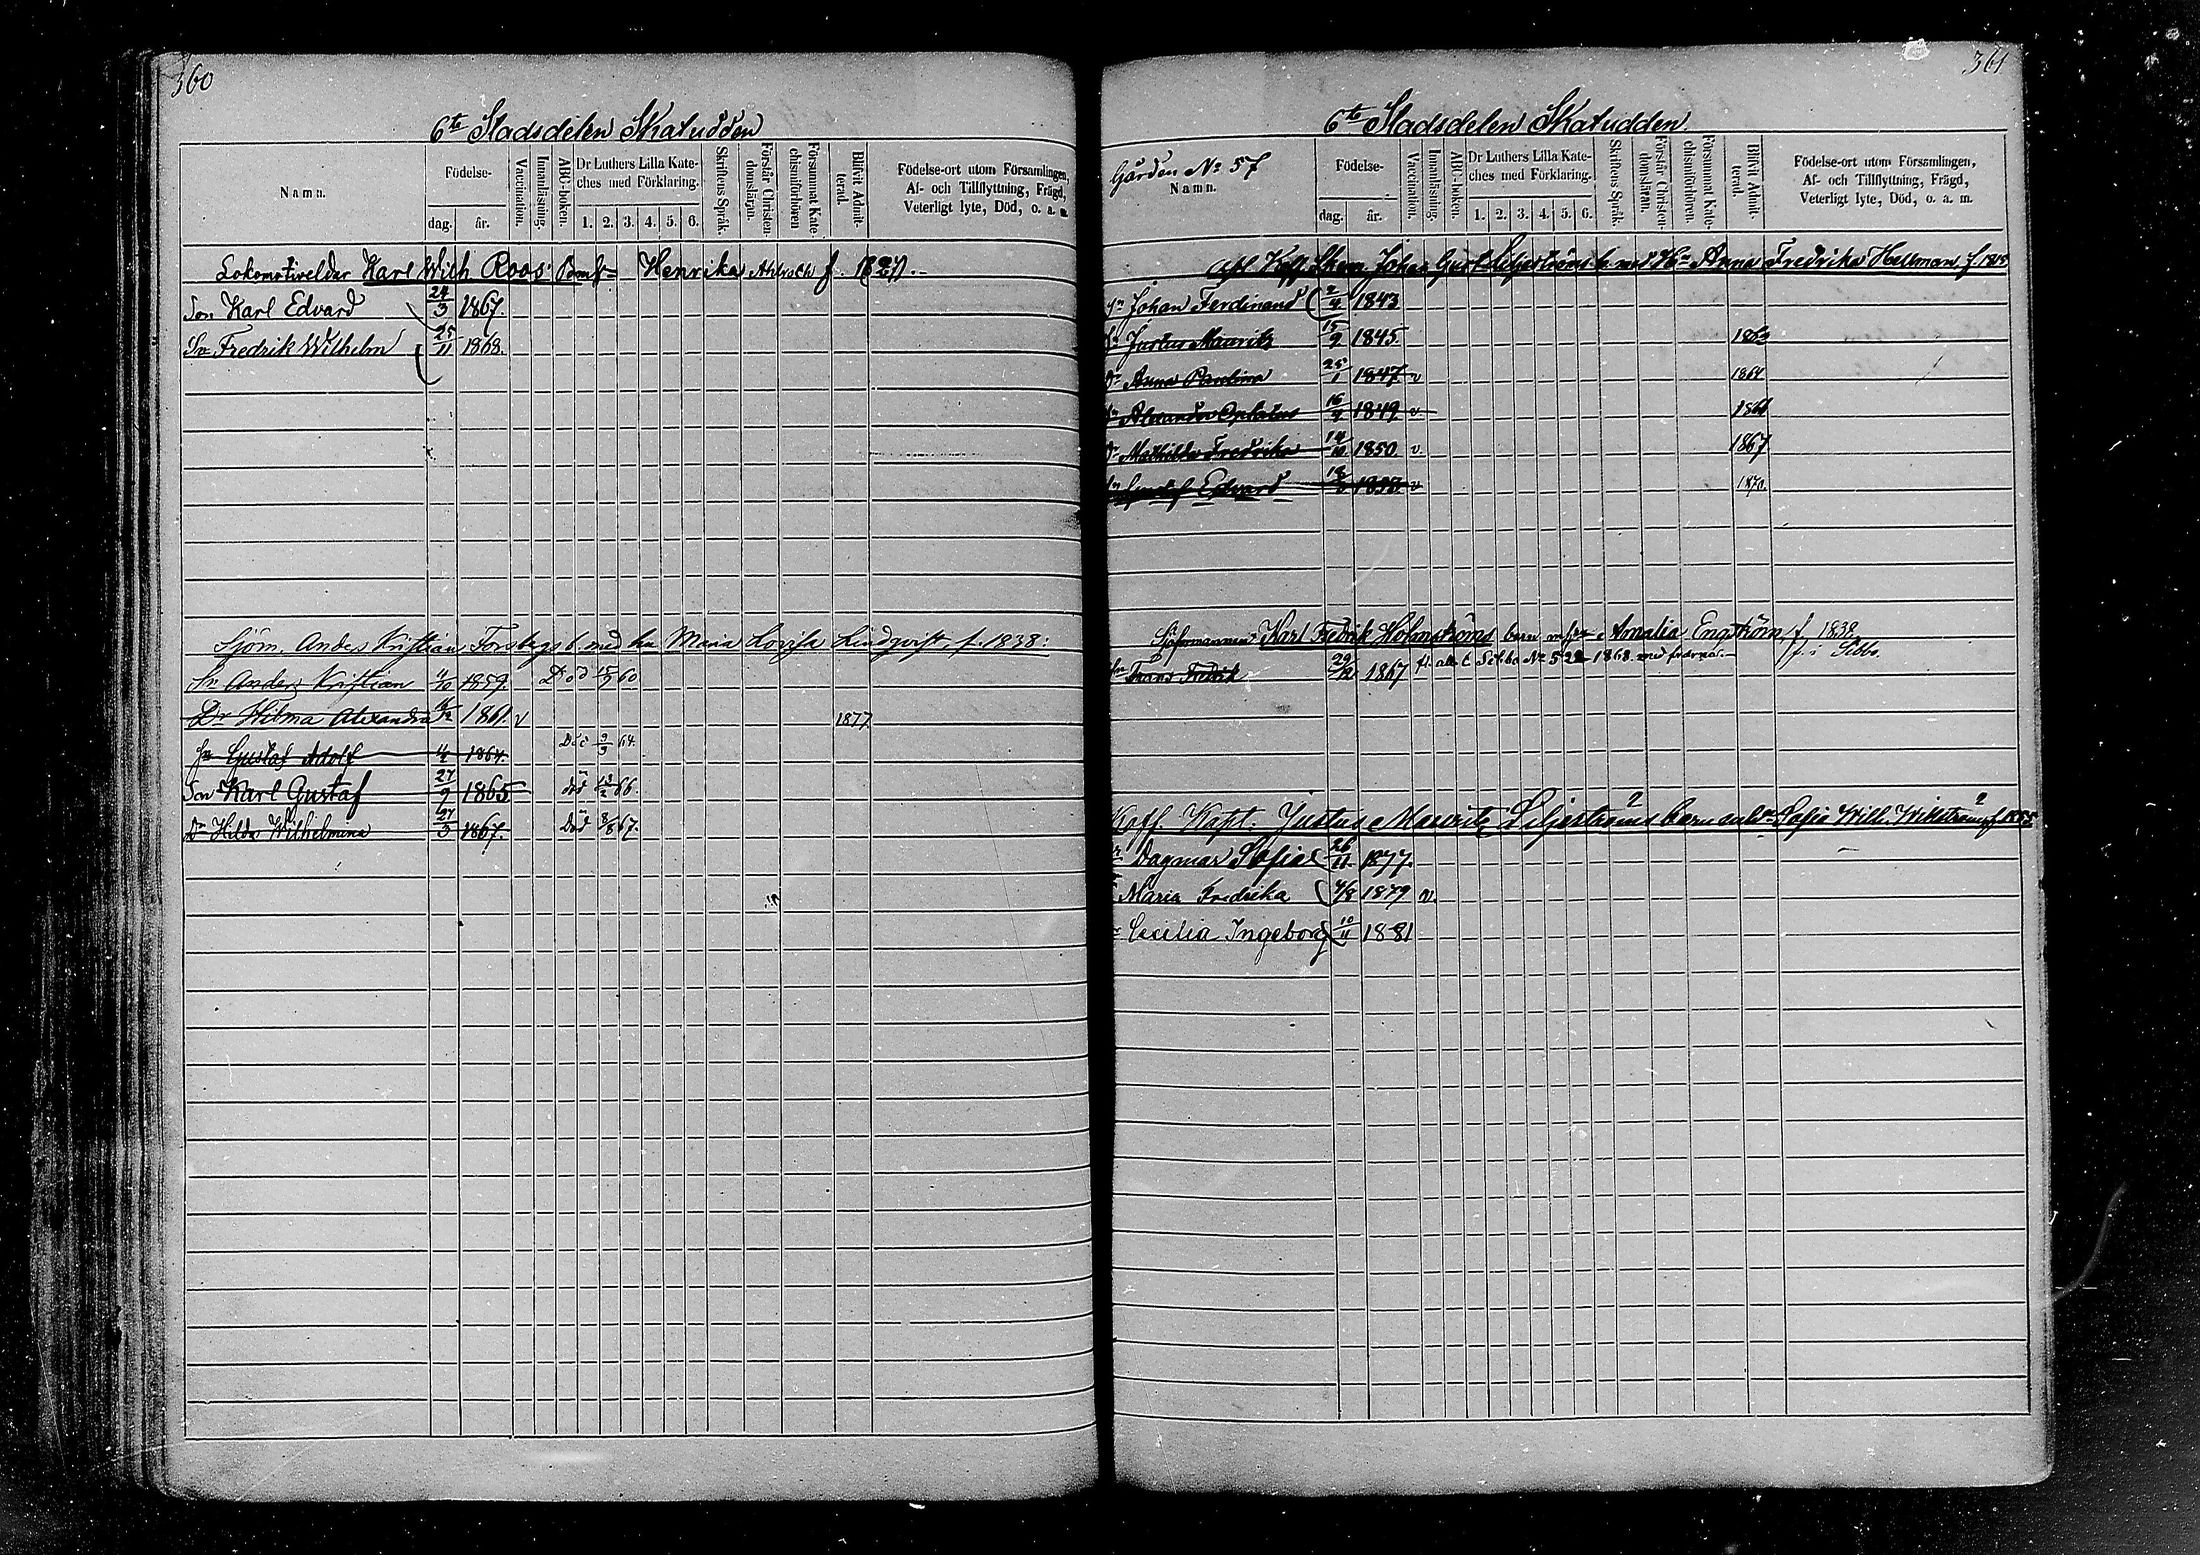 360
6te Stadsdelen Skatudden
Namn.
Födelse-
dag.
år.
Vaccination.
Innanläsning.
ABC-boken.
Dr Luthers Lilla Kate-
ches med Förklaring.
1. 2. 3. 4. 5. 6.
Skriftens Språk.
Förstår Christen-
domsläran.
Försummat Kate-
chismiförhören
Blifvit Admit-
terad.
Födelse-ort utom Församlingen,
Af- och Tillflyttning, Frägd,
Veterligt lyte, Död, o. a. m.
Lokomotiveldar Karl Wilh Roos: Henrika Ahlroth f.
Son Karl Edvard 24/3 1867.
Sn Fredrik Wilhelm 25/11 1868.
Sjöm. Anders Kristian Forsbergs b. med hu Maria Lovisa Lindqvist, f. 1838:
Sn Anders Kristian 4/10 1859. Död 15/9 60
Dr Hilma Alexandra 1861. v 1877
Sn Gustaf Adolf 1864. Död 9/9 64.
Son Karl Gustaf 27/9 1865 död 66
Dr Hilda Wilhelmina 27/3 1867. död 8/8 67.
361
6te Stadsdelen Skatudden.
Gården No 57
Namn.
Födelse-
dag.
år.
Vaccination.
Innanläsning.
ABC-boken.
Dr Luthers Lilla Kate-
ches med Förklaring.
1. 2. 3. 4. 5. 6.
Skriftens Språk.
Förstår Christen-
domsläran.
Försummat Kate-
chismiförhören.
Blifvit Admit-
terad.
Födelse-ort utom Församlingen,
Af- och Tillflyttning, Frägd,
Veterligt lyte, Död, o. a. m.
Koff. Skepp. Johan Gust Liljeströms b. med Anna Fredrika Hellman f
Sn Johan Ferdinand 2/4 1843
Sn Justus Mauritz 15/9 1845. 1863
Dr Anna Paulina 25/1 1847 v 1864
Sn Alexander 16/9 1849 v
Dr Mathilda Fredrika 14/10 1850 v 1867
Sn Gustaf Edvard v 1870.
Sjömannen Karl Fredrik Holmströms barn m. hu Amalia Engström f. 1838
f. i Sibbo.
Frans Fredrik 29/12 1867 fl. att. t. Sibbo No 1868 med
Koff Kapt. Justus Mauritz Liljeströms barn Sofia Will. Wikström f 1855
Dagmar Sofia 26/11 1877.
Maria Fredrika 4/8 1879 v.
Cecilia Ingeborg 10/11 1881